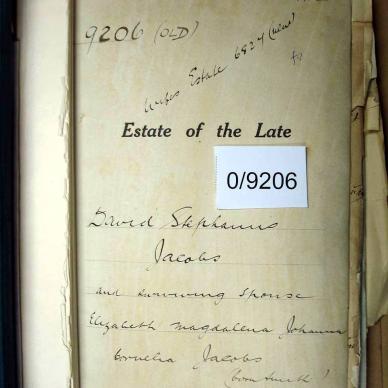 9206 (OLD)
Wifes Estate 6827 (new)
Estate of the Late
0/9206
David Stephanus
Jacobs
and surviving spouse
Elizabeth Magdalena Johanna
Cornelia Jacobs
(born Smith)